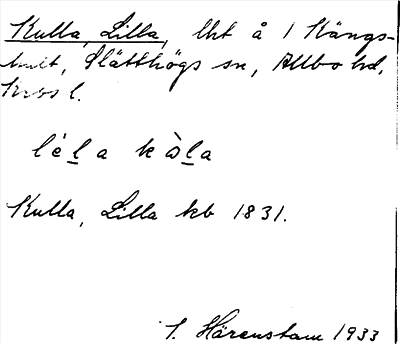 Kulla, Lilla, lht å 1 Kängs-
hult, Slätthögs sn, Allbo hd,
Kros l.
lèl̲a kòl̲a
Kulla, Lilla kb 1831.
S. Härenstam 1933